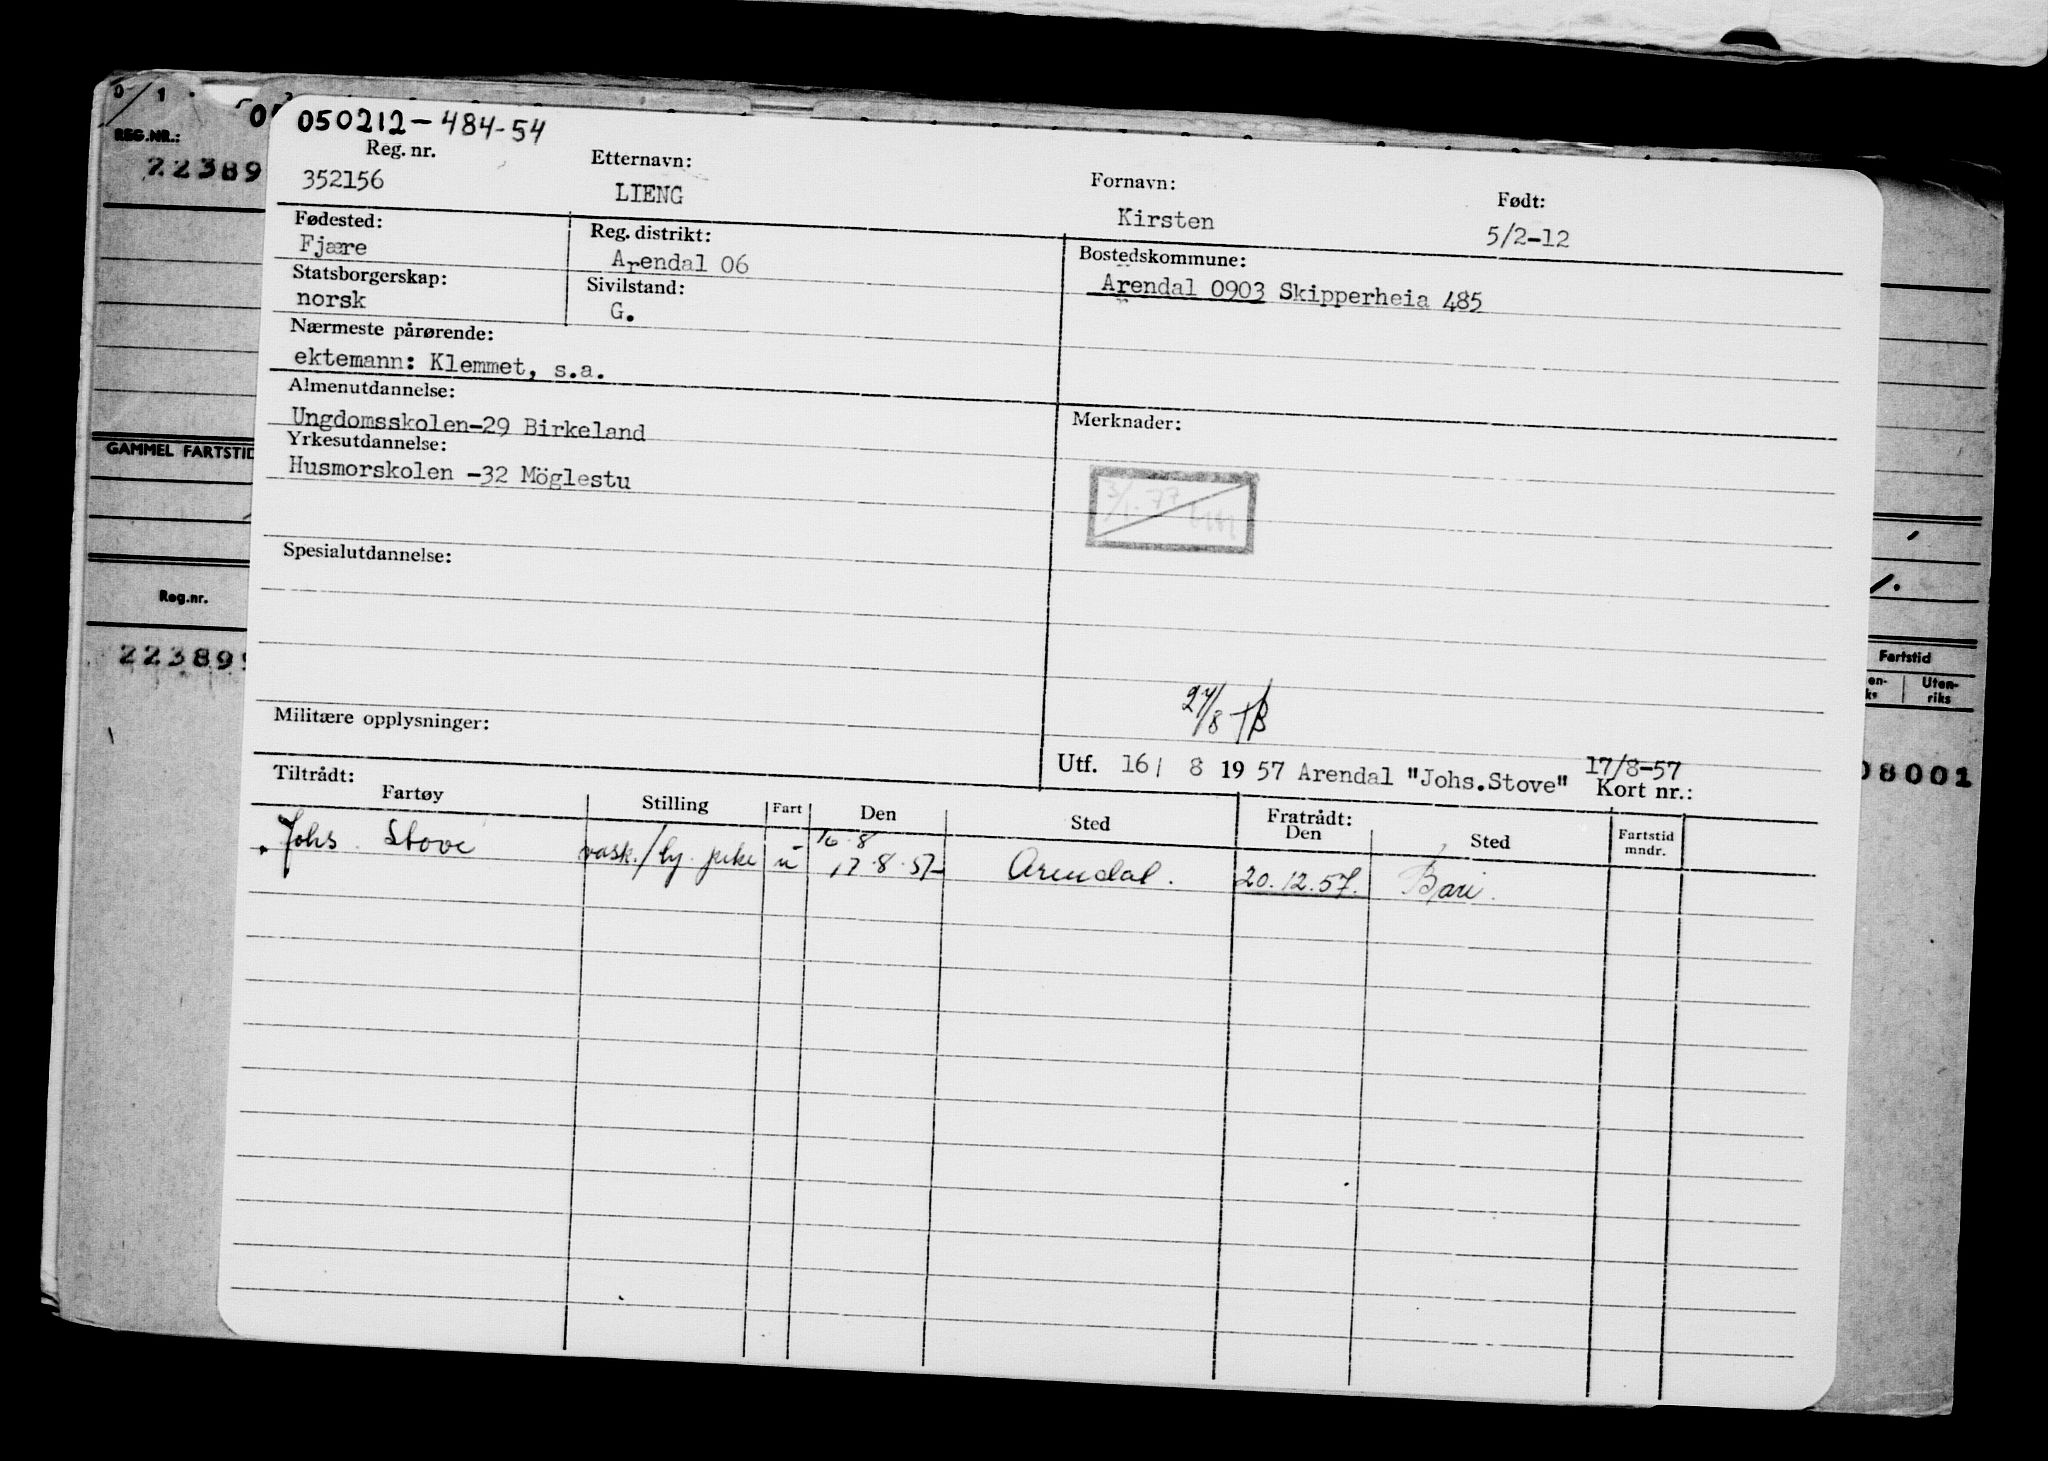 0/1
REG.NR.:
22389
050212-484-54
Reg. nr.
352156
Etternavn:
LIENG
Fornavn:
Kirsten
Født:
5/2-12
Fødested:
Fjære
Reg. distrikt:
Arendal 06
Bostedskommune:
Arendal 0903 Skipperheia 485
Statsborgerskap:
norsk
Sivilstand:
G.
Nærmeste pårørende:
ektemann: Klemmet, s.a.
Almenutdannelse:
Ungdomsskolen-29 Birkeland
Merknader:
Yrkesutdannelse:
Husmorskolen -32 Möglestu
3/1.77
Spesialutdannelse:
GAMMEL FARTSTID
Reg.nr.
223899
Fartstid
Uten-
riks
08001
27/8
Militære opplysninger:
Utf. 16/ 8 1957 Arendal "Johs.Stove" 17/8-57
Kort nr.:
Tiltrådt:
Fartøy Stilling Fart Den Sted Fratrådt: Den Sted Fartstid mndr.
16.8
Johs. Stove vask./lg. pike u 17.8.57 Arendal. 20.12.57. Bari.